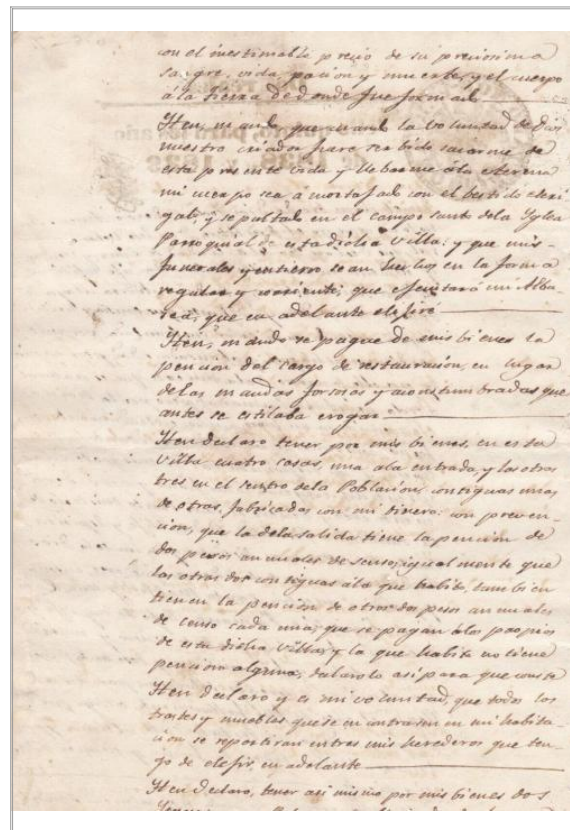 con el inestimable precio de su preciosisima
sangre, vida, pacion y muerte, y el cuerpo
á la tierra de donde fue formado
Iten, mando que quando la voluntad de Dios
nuestro criador fuere serbido sacarme de
esta presente vida y llebarme á la eterna
mi cuerpo sea amortajado con el bestido cleri
gal, y sepultado en el campo santo dela Ygleª
Parroquial de esta dicha Villa: y que mis
funerales y entierro sean hechos en la forma
regular y corriente, que ejecutará mi Alba-
cea, que en adelante elejiré
Iten, mando se pague de mis bienes la
pencion del cargo de restauracion, en lugar
delas mandas forsosas y acostumbradas que
antes se estilaba erogar
Iten declaro tener por mis bienes, en esta
Villa cuatro casas, una ala entrada, y las otras
tres en el sentro dela Poblacion, contiguas unas
de otras, fabricadas con mi dinero: con preven-
cion, que la dela salida tiene la pencion de
dos pesos annuales de senso, igualmente que
las otras dos contiguas ála que habito, tambien
tienen la pencion de otros dos pesos annuales
de censo cada una, que se pagan álos propios
de esta dicha Villa, y la que habito no tiene
pencion alguna, declarolo asi para que conste
Iten declaro y es mi voluntad, que todos los
trastes y muebles que se encontrasen en mi habita-
cion se repartiran entres mis herederos que ten-
go de elejir, en adelante
Iten declaro, tener asi mismo por mis bienes dos